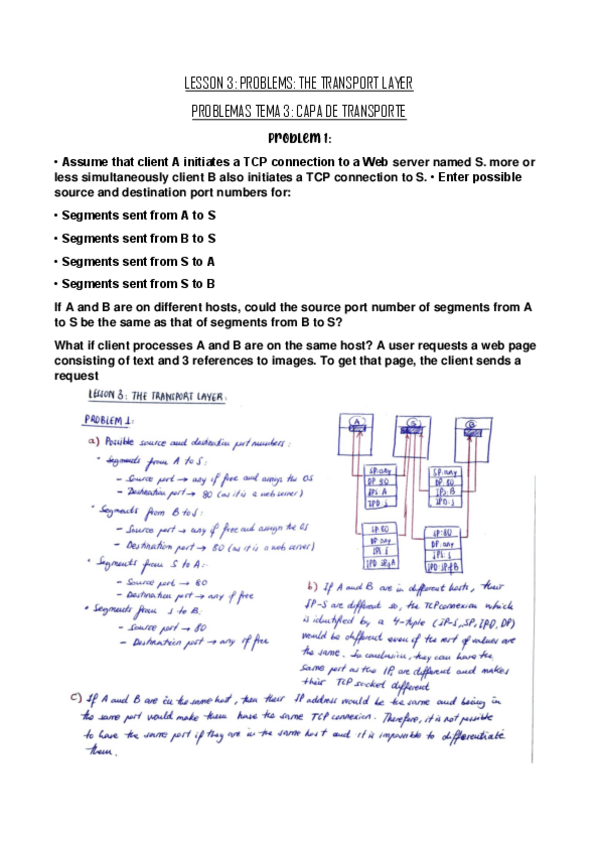 LESSON 3: PROBLEMS: THE TRANSPORT LAYER
PROBLEMAS TEMA 3: CAPA DE TRANSPORTE
Problem 1:
• Assume that client A initiates a TCP connection to a Web server named S. more or
less simultaneously client B also initiates a TCP connection to S. • Enter possible
source and destination port numbers for:
• Segments sent from A to S
• Segments sent from B to S
• Segments sent from S to A
• Segments sent from S to B
If A and B are on different hosts, could the source port number of segments from A
to S be the same as that of segments from B to S?
What if client processes A and B are on the same host? A user requests a web page
consisting of text and 3 references to images. To get that page, the client sends a
request
LESSON 3: THE TRANSPORT LAYER:
PROBLEM 1:
a) Possible source and destination port numbers:
• Segments from A to S:
- Source port → any if free and assign the OS
- Destination port → 80 (as it is a web server)
• Segments from B to S:
- Source port → any if free and assign the OS
- Destination port → 80 (as it is a web server)
• Segments from S to A:
- Source port → 80
- Destination port → any if free
• Segments from S to B:
- Source port → 80
- Destination port → any if free
A
S
B
SP: any
DP: 80
IPS: A
IPD: S
SP: any
DP: 80
IPS: B
IPD: S
SP: 80
DP: any
IPS: S
IPD: IP A
SP: 80
DP: any
IPS: S
IPD: IP B
b) If A and B are in different hosts, their
IP-S are different so, the TCP connexion which
is identified by a 4-tuple (IP-S, SP, IPD, DP)
would be different even if the rest of values are
the same. In conclusion, they can have the
same port as the IP are different and makes
their TCP socket different
c) If A and B are in the same host, then their IP address would be the same and being in
the same port would make them have the same TCP connexion. Therefore, it is not possible
to have the same port if they are in the same host and it is impossible to differentiate
them.